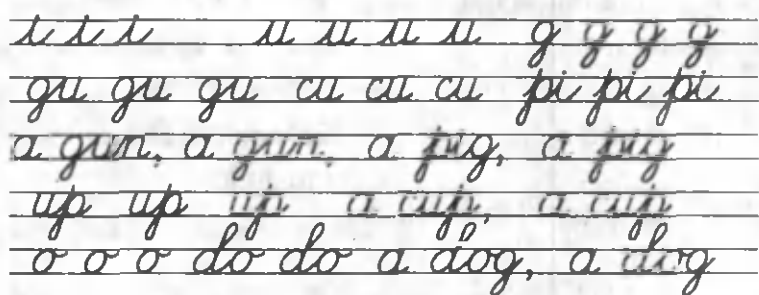 i i i u u u u g g g g
gu gu gu cu cu cu pi pi pi
a gun, a gun, a jug, a jug
up up up a cup, a cup
o o o do do a dog, a dog